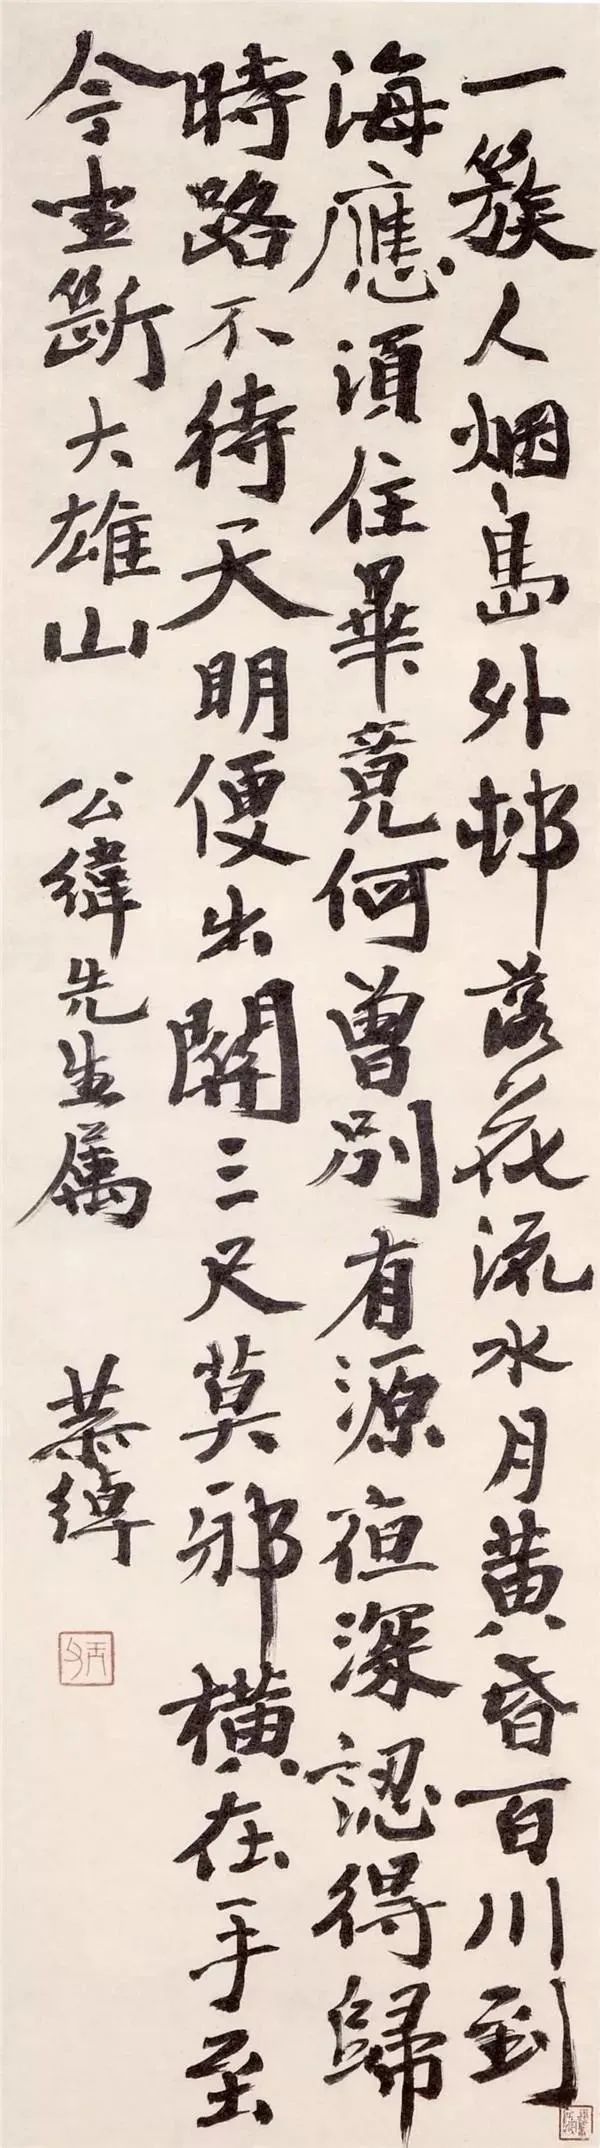 一簇人烟島外邨落花流水月黄昏百川到
海應須住畢竟何曾別有源夜深認得歸
時路不待天明便出關三尺莫邪橫在手至
今坐斷大雄山
公緯先生属
慕緯